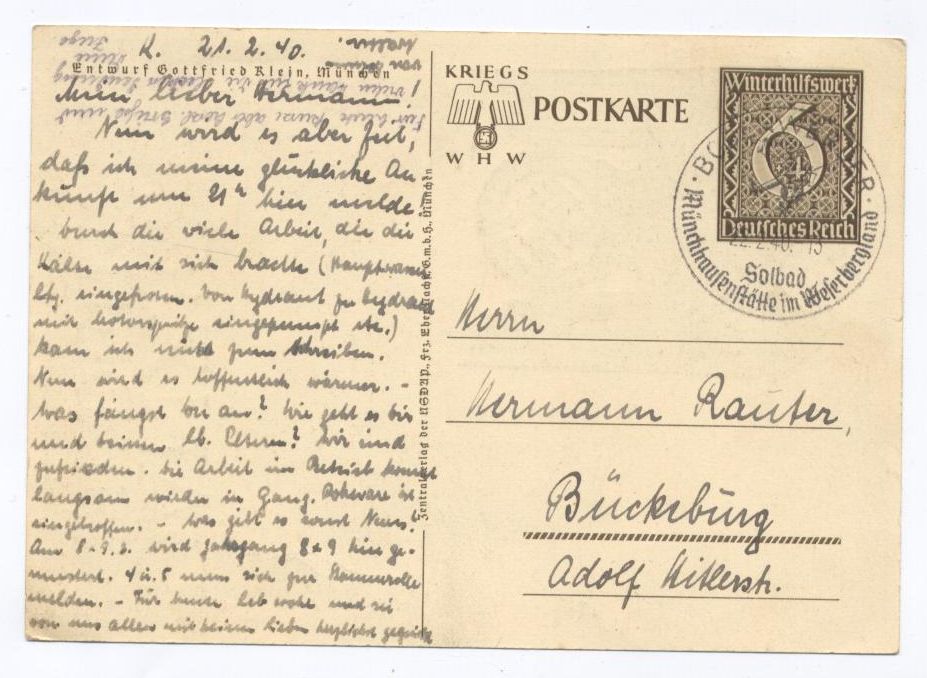 K. 21.2.40.
Entwurf Gottfried Klein, München
Mein lieber Hermann!
Nun wird es aber Zeit,
daß ich meine glückliche An
kunft um 21 h hier melde!
Durch die viele Arbeit, die die
Kälte mit sich brachte (Hauptwasser
ltg. eingefroren. Von Hydrant zu Hydrant
mit Motorspritze eingepumpt etc.)
kam ich nicht zum Schreiben.
Nun wird es hoffentlich wärmer. –
Was fängst Du an? Wie geht es Dir
und Deinen lb. Eltern? Wir sind
zufrieden. Die Arbeit im Betrieb kommt
langsam wieder in Gang. Rohware ist
eingetroffen. – Was gibt es sonst Neues?
Am 8.-9.3. wird Jahrgang 8 & 9 hier ge-
mustert. 4 u. 5 muss sich zur Stammrolle
melden. – Für heute leb wohl und sei
von uns allen mit Deinen Lieben herzlichst gegrüßt
Zentralverlag der NSDAP., Frz. Eher Nachf. G.m.b.H., München
KRIEGS
WHW
POSTKARTE
Winterhilfswerk
Deutsches Reich
22.2.40.
Solbad
Münchhausenstätte im Weserbergland
Herrn
Hermann Rauter,
Bückeburg
Adolf Hitlerstr.